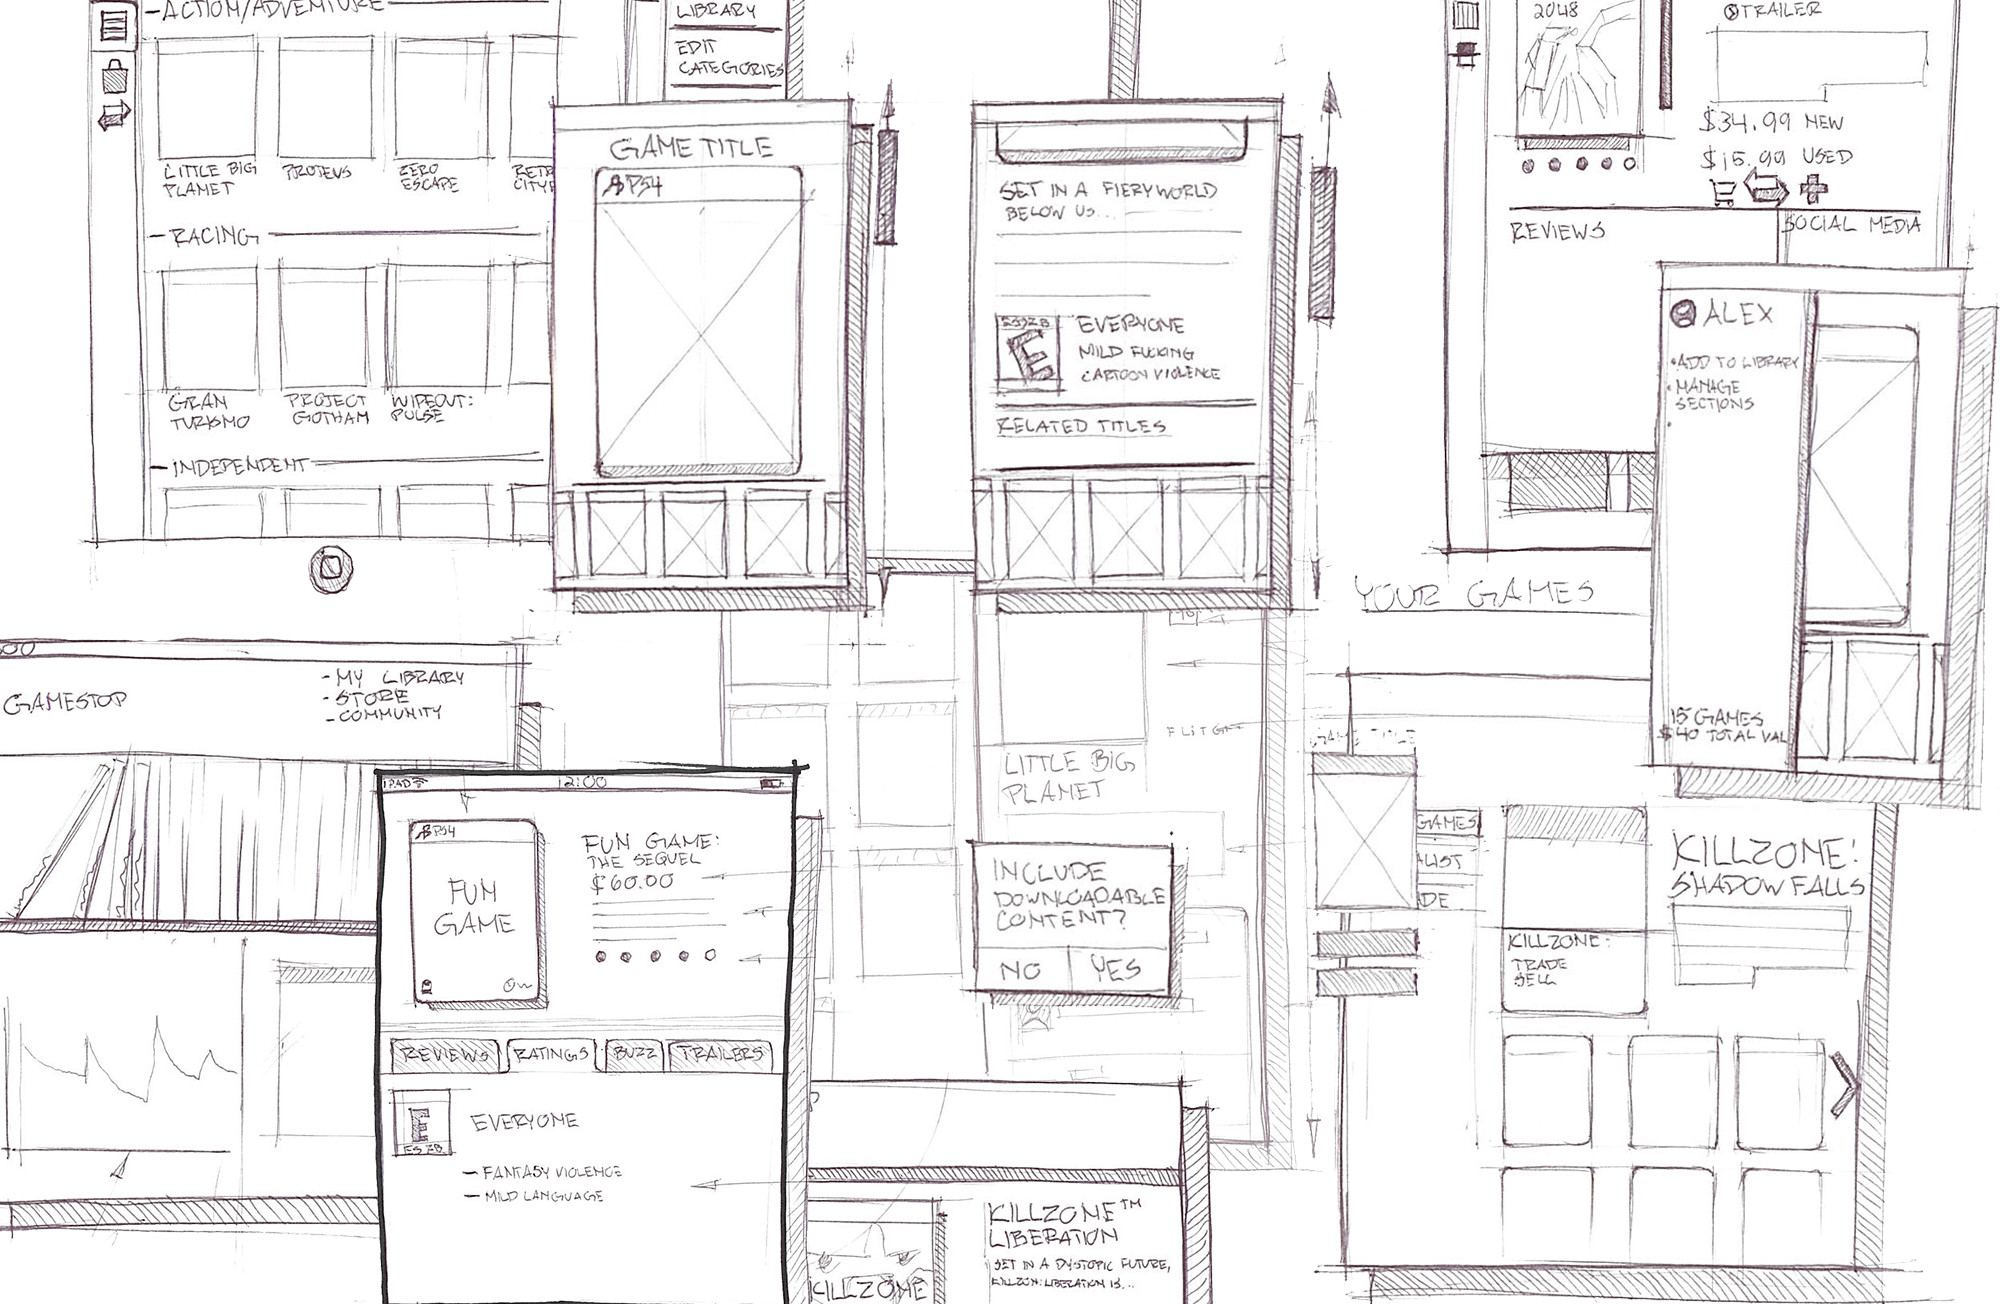 ACTION/ADVENTURE
LITTLE BIG
PLANET
PROTEUS
ZERO
ESCAPE
RACING
GRAN
TURISMO
PROJECT
GOTHAM
WIPEOUT:
PULSE
INDEPENDENT
LIBRARY
EDIT
CATEGORIES
GAME TITLE
PS4
SET IN A FIERY WORLD
BELOW US...
E
EVERYONE
MILD FUCKING
CARTOON VIOLENCE
RELATED TITLES
2048
TRAILER
$34.99 NEW
$15.99 USED
REVIEWS
SOCIAL MEDIA
ALEX
• ADD TO LIBRARY
• MANAGE
SECTIONS
15 GAMES
$40 TOTAL VAL
YOUR GAMES
GAMESTOP
- MY LIBRARY
- STORE
- COMMUNITY
IPAD
12:00
PS4
FUN
GAME
FUN GAME:
THE SEQUEL
$60.00
REVIEWS
RATINGS
BUZZ
TRAILERS
E
EVERYONE
- FANTASY VIOLENCE
- MILD LANGUAGE
LITTLE BIG
PLANET
INCLUDE
DOWNLOADABLE
CONTENT?
NO
YES
GAME TITLE
GAMES
KILLZONE:
SHADOW FALLS
KILLZONE:
TRADE
SELL
KILLZONE
KILLZONE™
LIBERATION
SET IN A DYSTOPIC FUTURE,
KILLZON: LIBERATION IS...